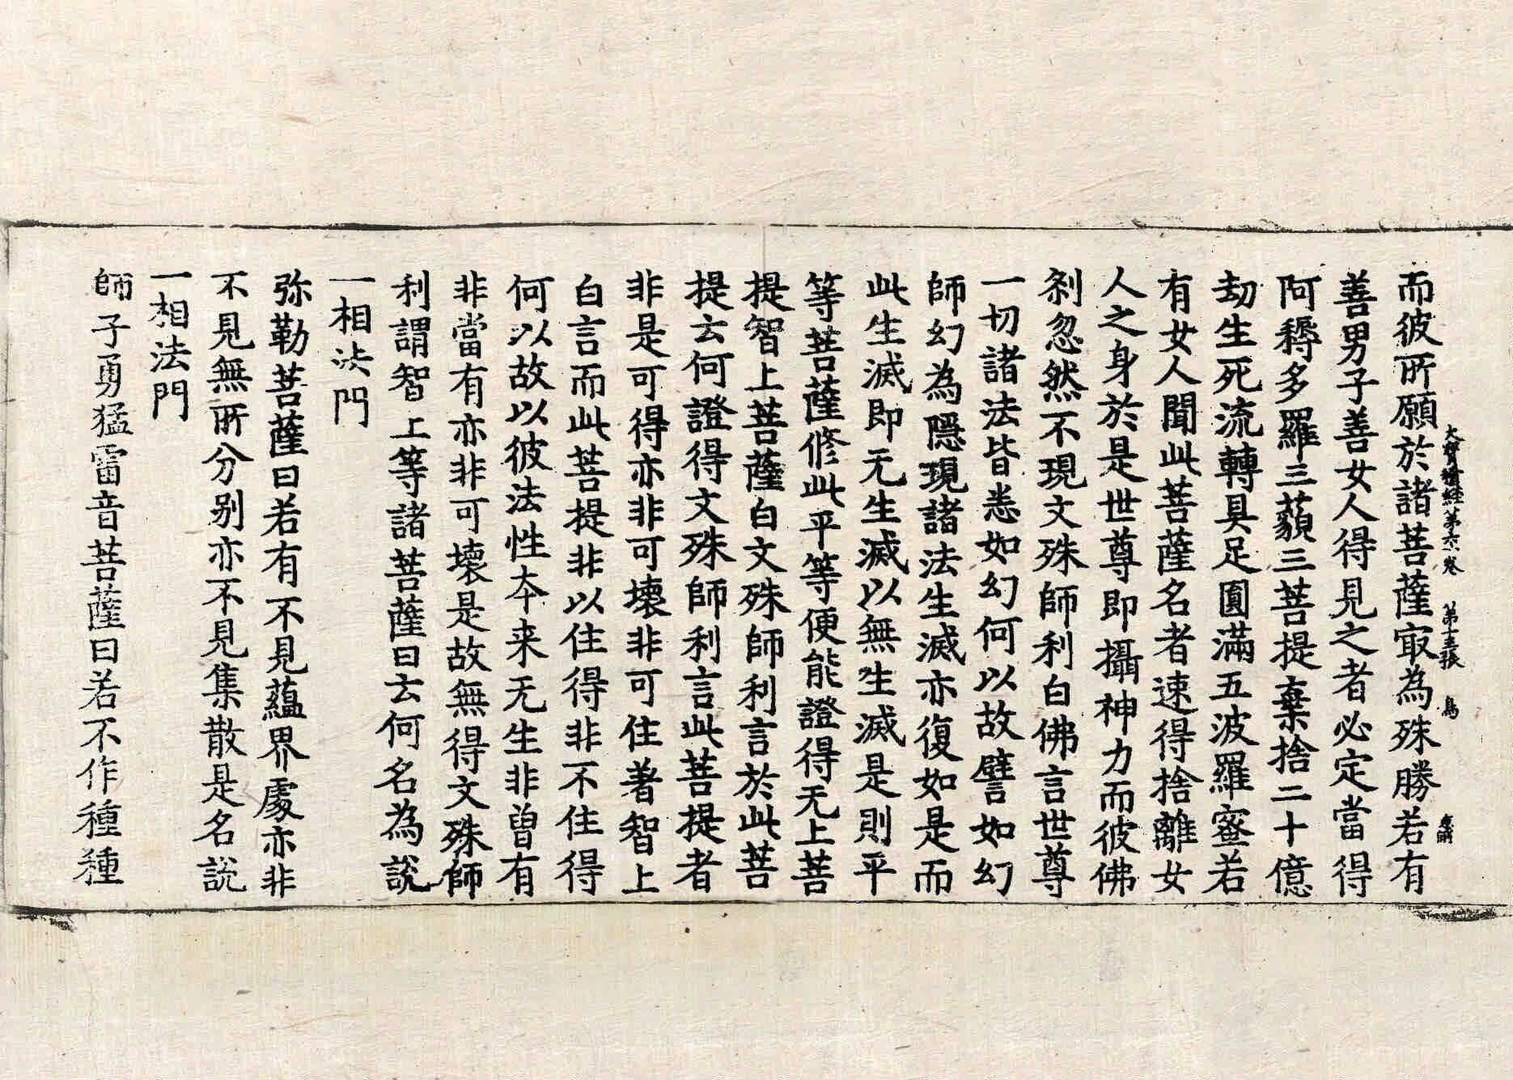 大寶積經第六十卷 第十五張 鳥
而彼所願於諸菩薩㝡為殊勝若有
善男子善女人得見之者必定當得
阿耨多羅三藐三菩提棄捨二十億
劫生死流轉具足圓滿五波羅蜜若
有女人聞此菩薩名者速得捨離女
人之身於是世尊即攝神力而彼佛
剎忽然不現文殊師利白佛言世尊
一切諸法皆悉如幻何以故譬如幻
師幻為隱現諸法生滅亦復如是而
此生滅即无生滅以無生滅是則平
等菩薩修此平等便能證得无上菩
提智上菩薩白文殊師利言於此菩
提云何證得文殊師利言此菩提者
非是可得亦非可壞非可住著智上
白言而此菩提非以住得非不住得
何以故以彼法性本来无生非曾有
非當有亦非可壞是故無得文殊師
利謂智上等諸菩薩曰云何名為說
一相法門
弥勒菩薩曰若有不見蘊界處亦非
不見無所分别亦不見集散是名說
一相法門
師子勇猛雷音菩薩曰若不作種種